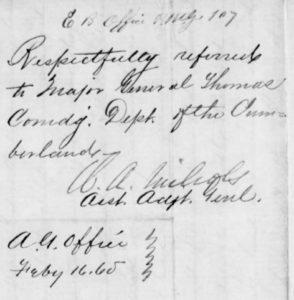 E B Office
Respectfully referred
to Major General Thomas
Comdg. Dept. of the Cum-
berland
Asst. Adgt. Genl.
A. G. Office
Feby 16. 65